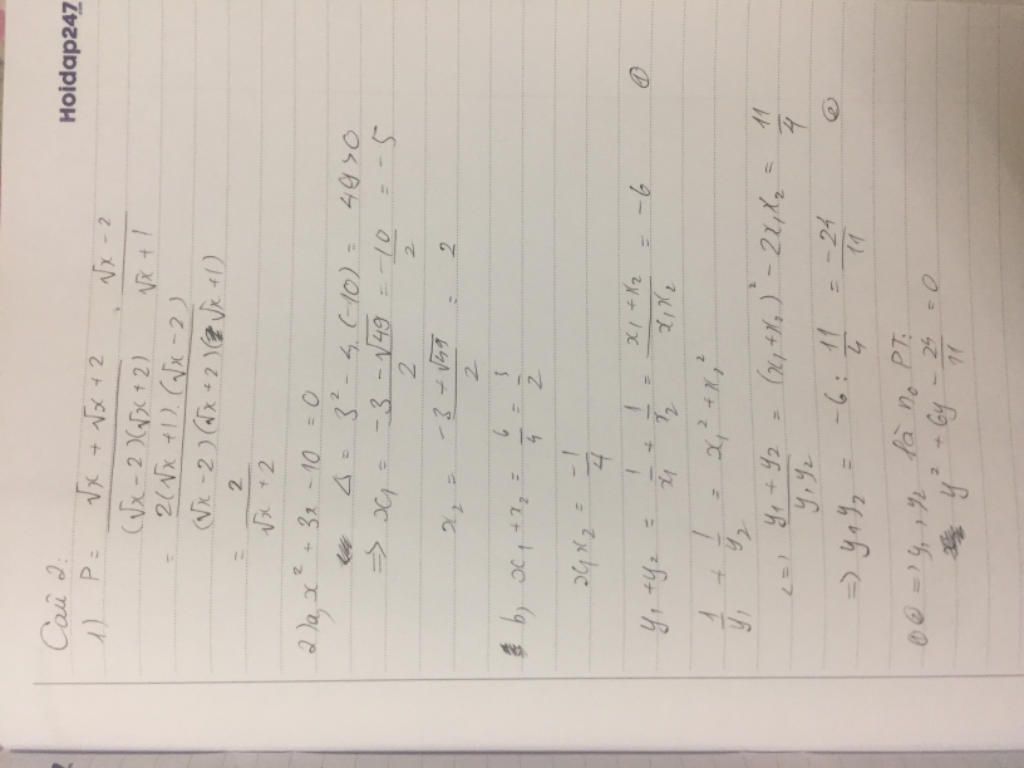 Hoidap247
Câu 2:
1) P = (√x + √x + 2)/((√x - 2)(√x + 2)) : (√x - 2)/(√x + 1)
= 2(√x + 1).(√x - 2)/((√x - 2)(√x + 2)(√x + 1)
= 2/(√x + 2)
2) a, x² + 3x - 10 = 0
Δ = 3² - 4.(-10) = 49 > 0
=> x₁ = (-3 - √49)/2 = -10/2 = -5
x₂ = (-3 + √49)/2 = 2
b, x₁ + x₂ = 6/4 = 3/2
x₁x₂ = -1/4
y₁ + y₂ = 1/x₁ + 1/x₂ = (x₁ + x₂)/(x₁x₂) = -6 ①
1/y₁ + 1/y₂ = x₁² + x₂²
<=> (y₁ + y₂)/(y₁y₂) = (x₁ + x₂)² - 2x₁x₂ = 11/4
=> y₁y₂ = -6 : 11/4 = -24/11 ②
①② => y₁, y₂ là no PT:
y² + 6y - 24/11 = 0